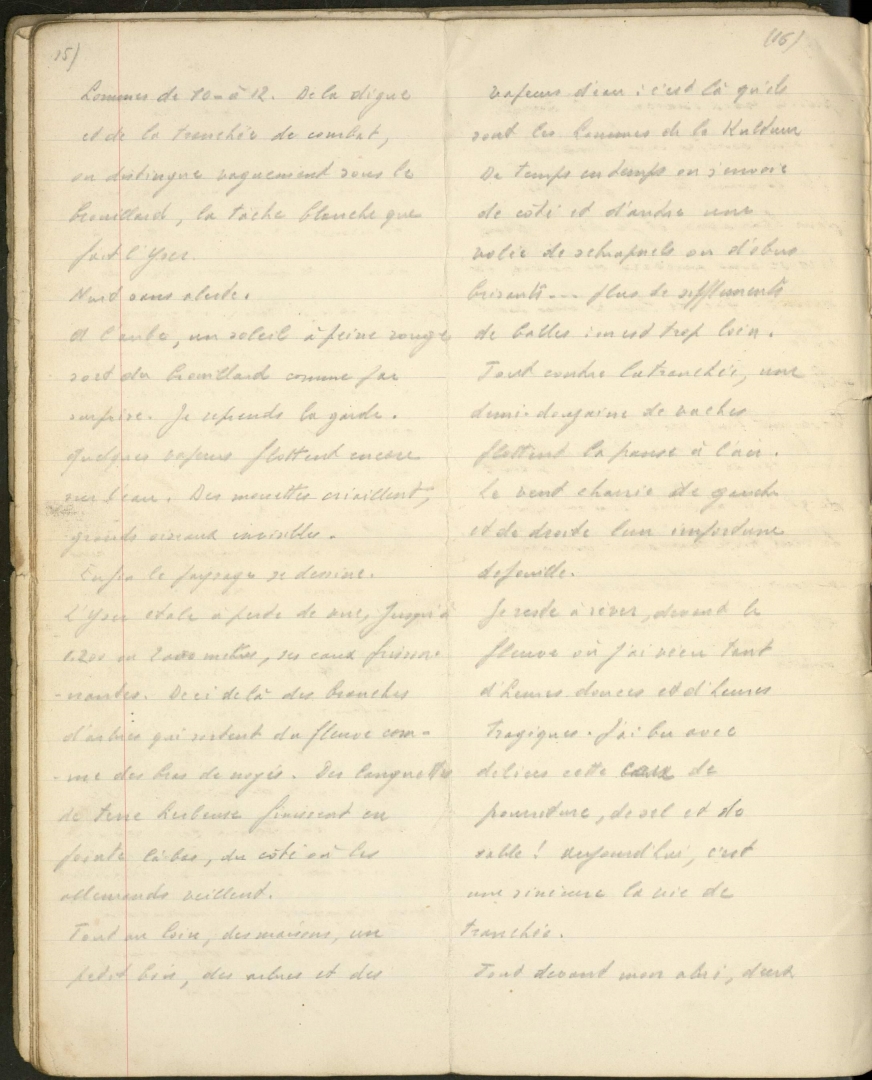 15)
hommes de 10 à 12. De la digue
et de la tranchée de combat,
on distingue vaguement sous le
brouillard, la tache blanche que
fait l'Yser.
Nuit sans alerte.
A l'aube, un soleil à peine rouge
sort du brouillard comme par
surprise. Je reprends la garde.
Quelques vapeurs flottent encore
sur l'eau. Des mouettes criaillent,
grands oiseaux invisibles.
Enfin le paysage se dessine.
L'Yser étale à perte de vue, jusqu'à
1.200 ou 2000 mètres, ses eaux frisson-
-nantes. De ci de là des branches
d'arbres qui sortent du fleuve com-
-me des bras de noyés. Des languettes
de terre herbeuse finissent en
pointe là bas, du côté où les
allemands veillent.
Tout au loin, des maisons, un
petit bois, des arbres et des
(16)
vapeurs d'eau : c'est là qu'ils
sont les hommes de la Kultuur
De temps en temps on s'envoie
de côté et d'autre une
volée de schrapnels ou d'obus
brisants... plus de sifflements
de balles : on est trop loin.
Tout contre la tranchée, une
demi-douzaine de vaches
flottent la panse à l'air.
Le vent charrie de gauche
et de droite leur importune
dépouille.
Je reste à rêver, devant le
fleuve où j'ai vécu tant
d'heures douces et d'heures
tragiques. J'ai bu avec
délices cette eau de
pourriture, de sel et de
sable ! Aujourd'hui, c'est
une sinécure la vie de
tranchée.
Tout devant mon abri, deux